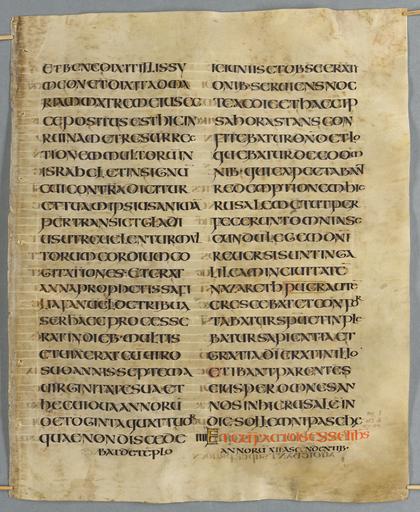 ETBENEDIXITILLISSY
MEONETDIXITADMA
RIAMMATREMEIUSEC
CEPOSITUSESTHICIN
RUINAMETRESURREC
TIONEMMULTORUIN
ISRAHELETINSIGNU
CUICONTRADICITUR
ETTUAMIPSIUSANIMA
PERTRANSIETGLADI
USUTREUELENTURMUL
TORUMCORDIUMCO
GITATIONES·ETERAT
ANNAPROPHETISSAFI
LIAFANUELDETRIBUA
SERHAECPROCESSE
RATINDIEB·MULTIS
ETUIXERATCUUIRO
SUOANNISSEPTEMA
UIRGINITATESUAET
HECUIDUAANNORU
OCTOGINTAQUATTUOR
QUAENONDISCEDE
BATDETEPLO
IEIUNIISETOBSECRATI
ONIB·SERUIENSNOC
TEACDIEETHAECIP
SAHORASTANSCON
FITEBATURDNOETLO
QUEBATURDEEOOM
NIB·QUIEXPECTABAN
REDEMPTIONEMHIE
RUSALEMETUTPER
FECERUNTOMNIASE
CUNDULEGEMDNI
REUERSISUNTINGA
LILEAMINCIUITATE
NAZARETHPUERAUTE
CRESCEBATETCONFOR
TABATURSPUETINPLE
BATURSAPIENTIAET
GRATIADIERATINILLO
ETIBANTPARENTES
EIUSPEROMNESAN
NOSINHIERUSALEIN
DIESOLLEMNIPASCHE
IIII ETCUFACTUSESSETIHS
ANNORU XII